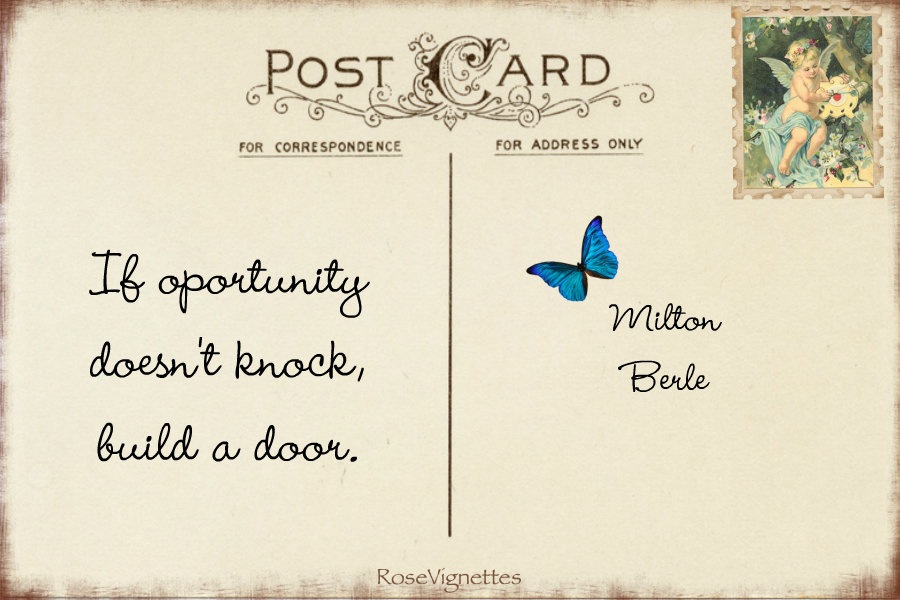 POST CARD
FOR CORRESPONDENCE
FOR ADDRESS ONLY
If oportunity
doesn't knock,
build a door.
Milton
Berle
RoseVignettes